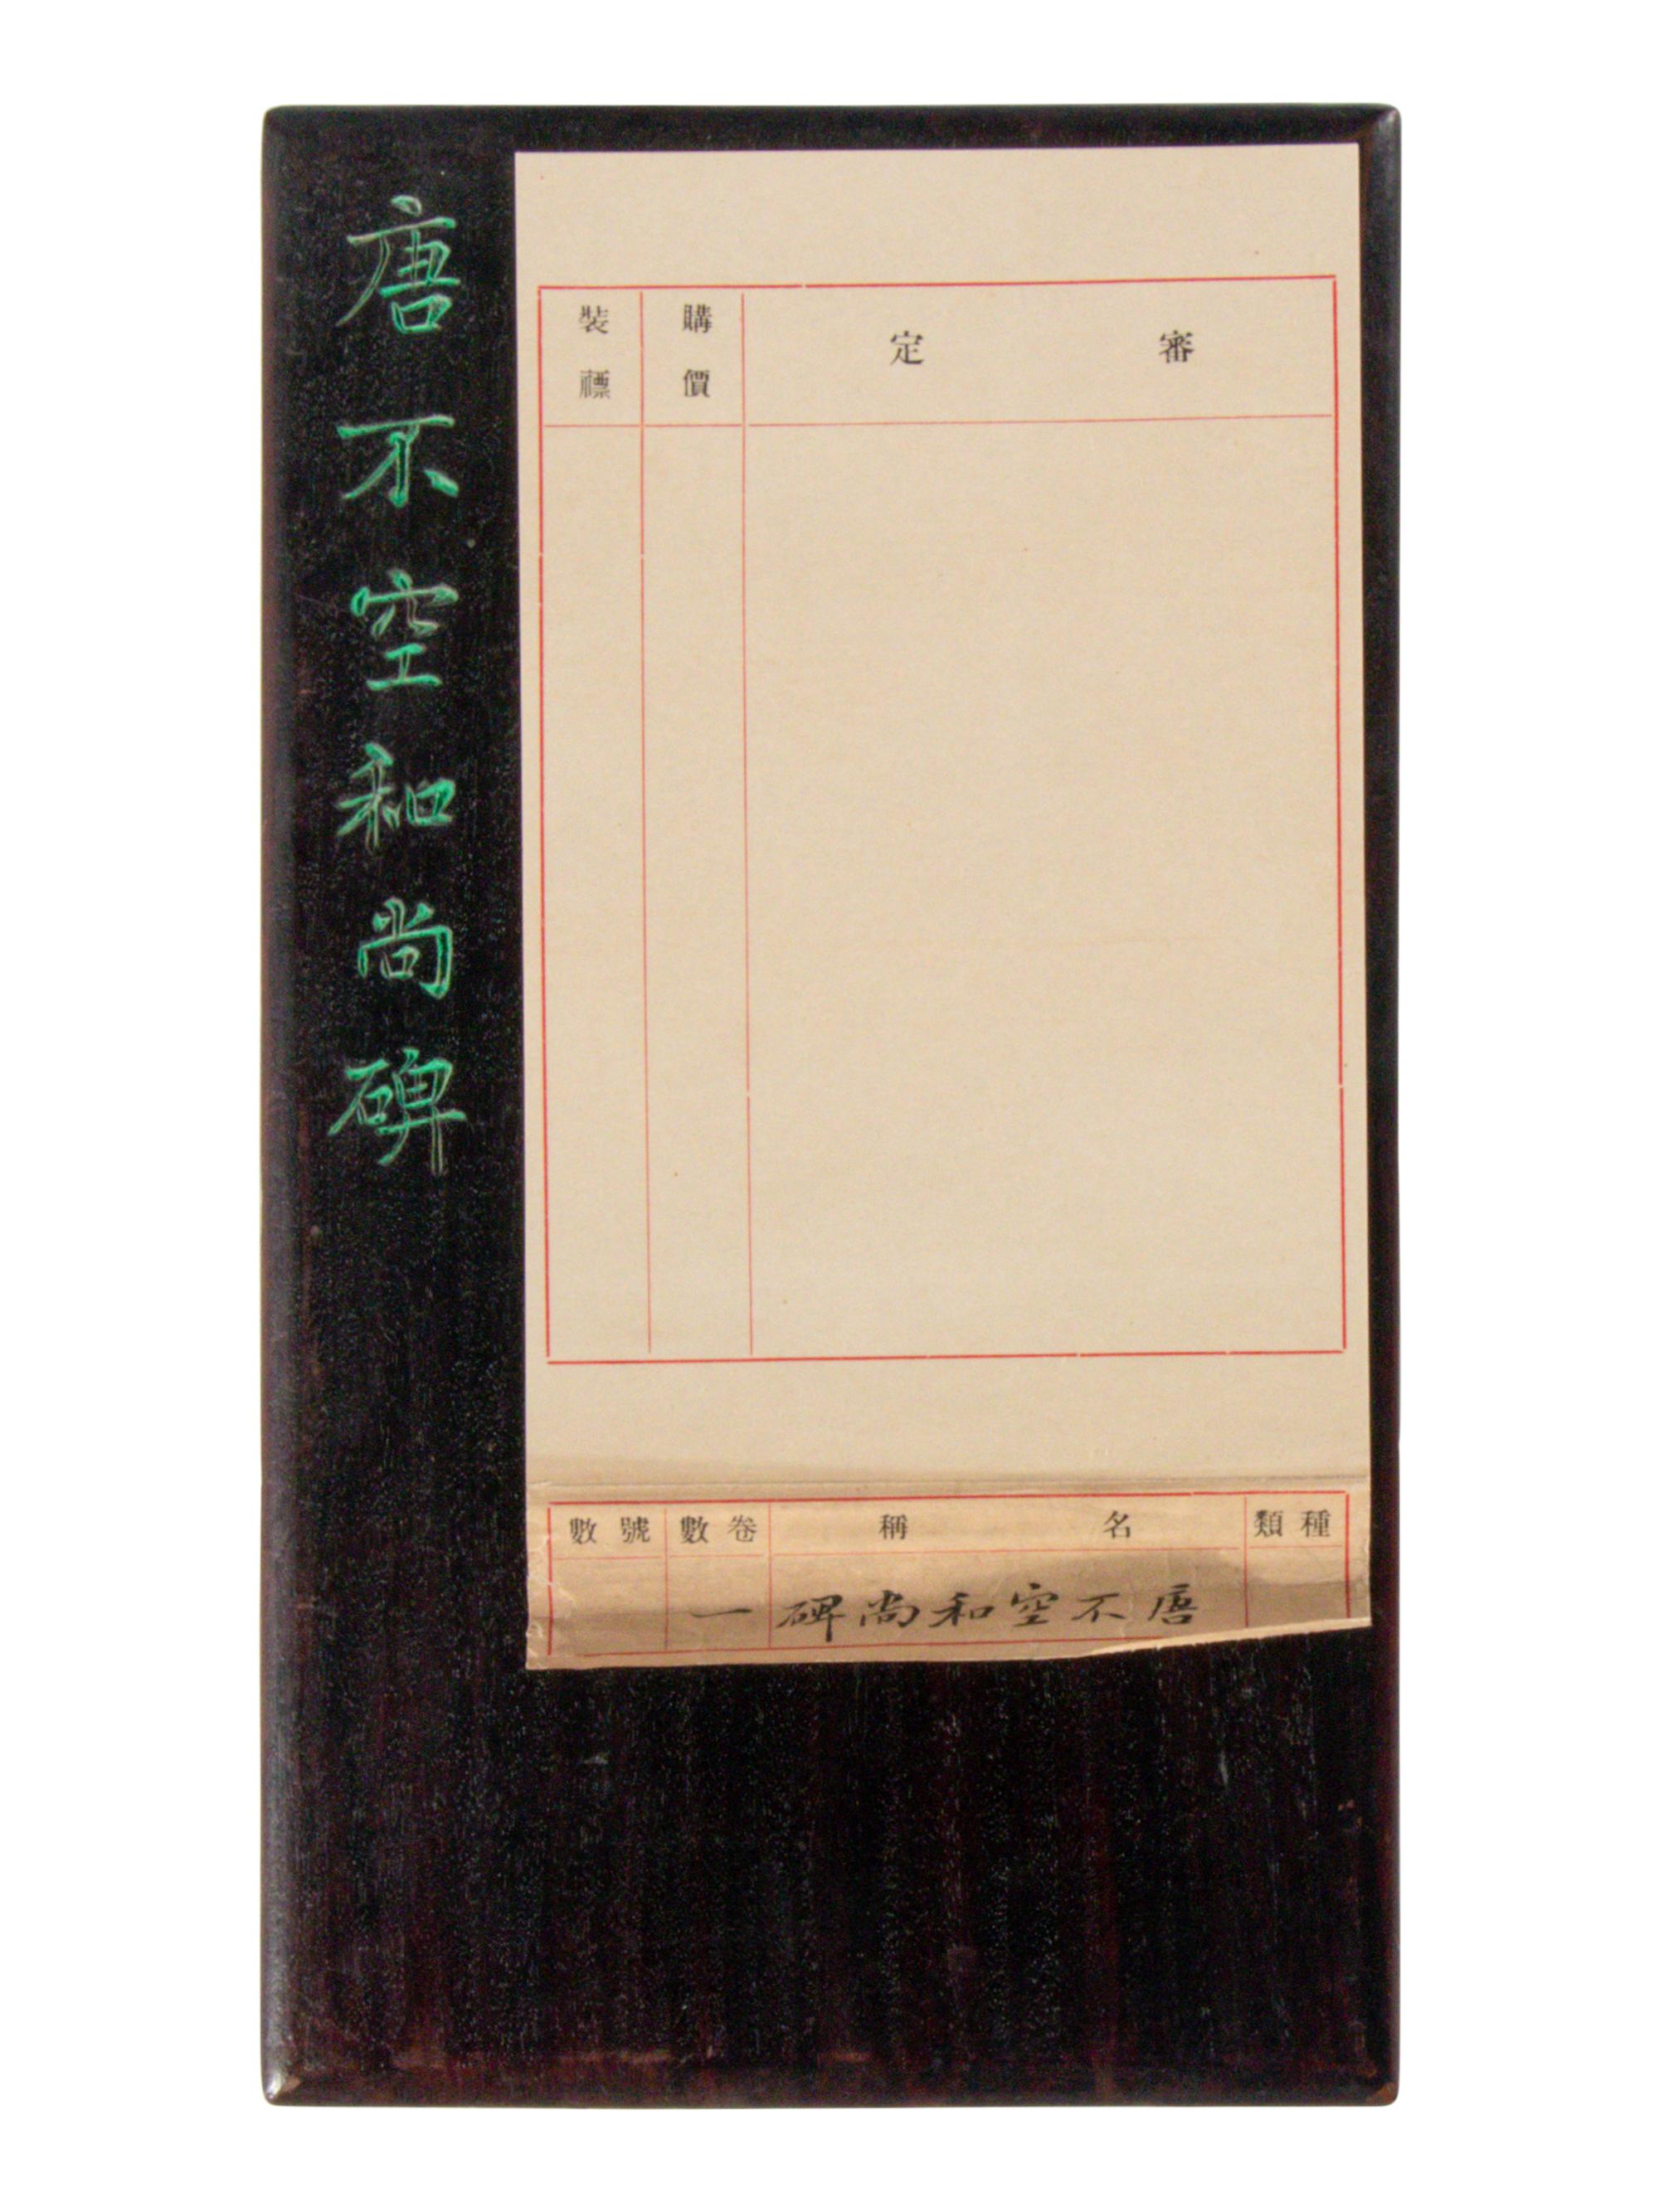 唐不空和尚碑
審定
購價
裝褾
種類
名稱
卷數
號數
唐不空和尚碑
一